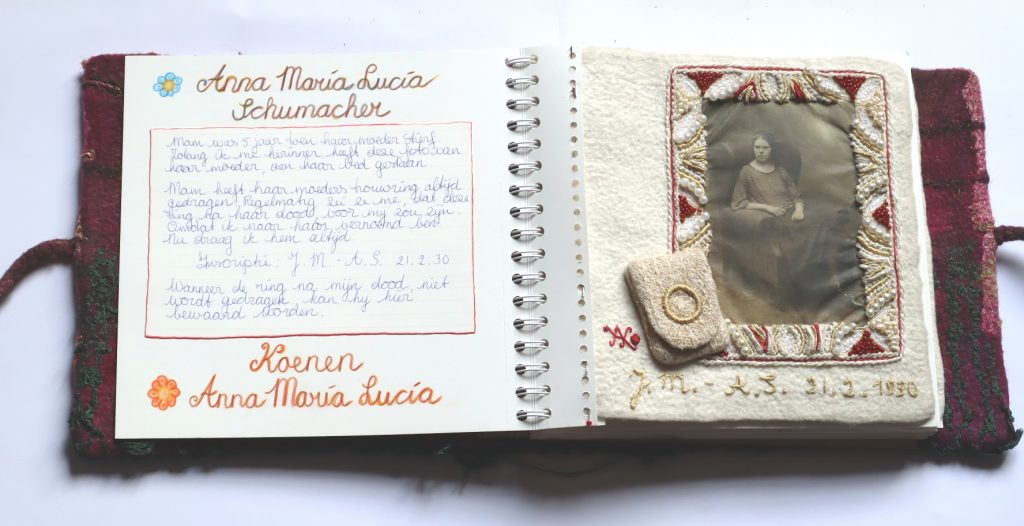 Anna María Lucía
Schumacher
Mam was 5 jaar toen haar moeder stierf
Zolang ik me herinner heeft deze foto van
haar moeder, aan haar bed gestaan.
Mam heeft haar moeders trouwring altijd
gedragen. Regelmatig zei ze me, dat deze
ring na haar dood, voor my zou zyn.
Omdat ik naar haar vernoemd ben.
Nu draag ik hem altijd.
Inscriptie: J. M. - A. S. 21.2.30
Wanneer de ring na mijn dood, niet
wordt gedragen, kan hy hier
bewaard worden.
Koenen
Anna María Lucía
J. M. - A. S. 21.2.1930